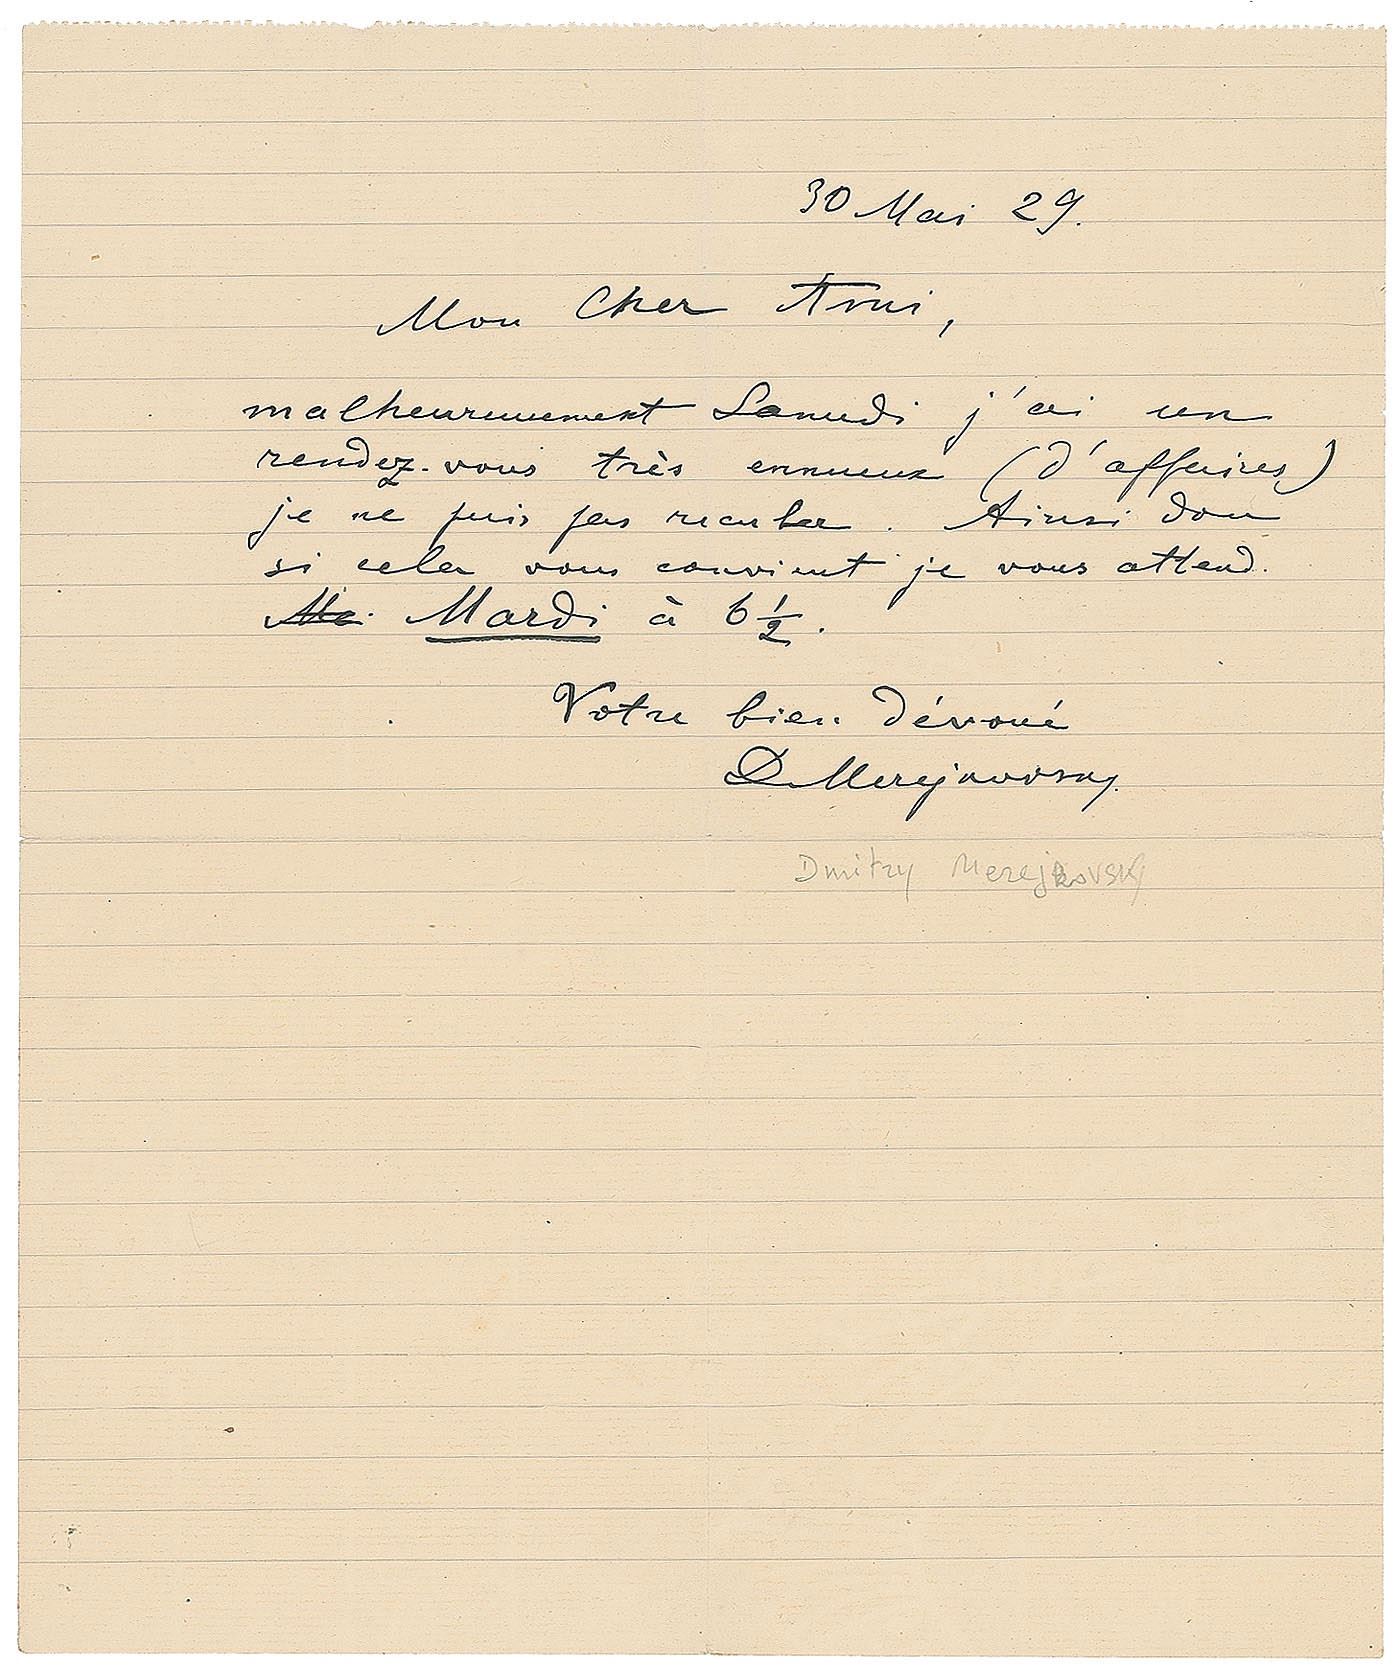 30 Mai 29.
Mon Cher Ami,
malheureusement Samedi j'ai un
rendez-vous très ennuieux (d'affaires)
je ne puis pas reculer. Ainsi donc
si cela vous convient je vous attend.
Mardi à 6 1/2.
Votre bien dévoué
D. Merejkovsky.
Dmitry Merejkovsky